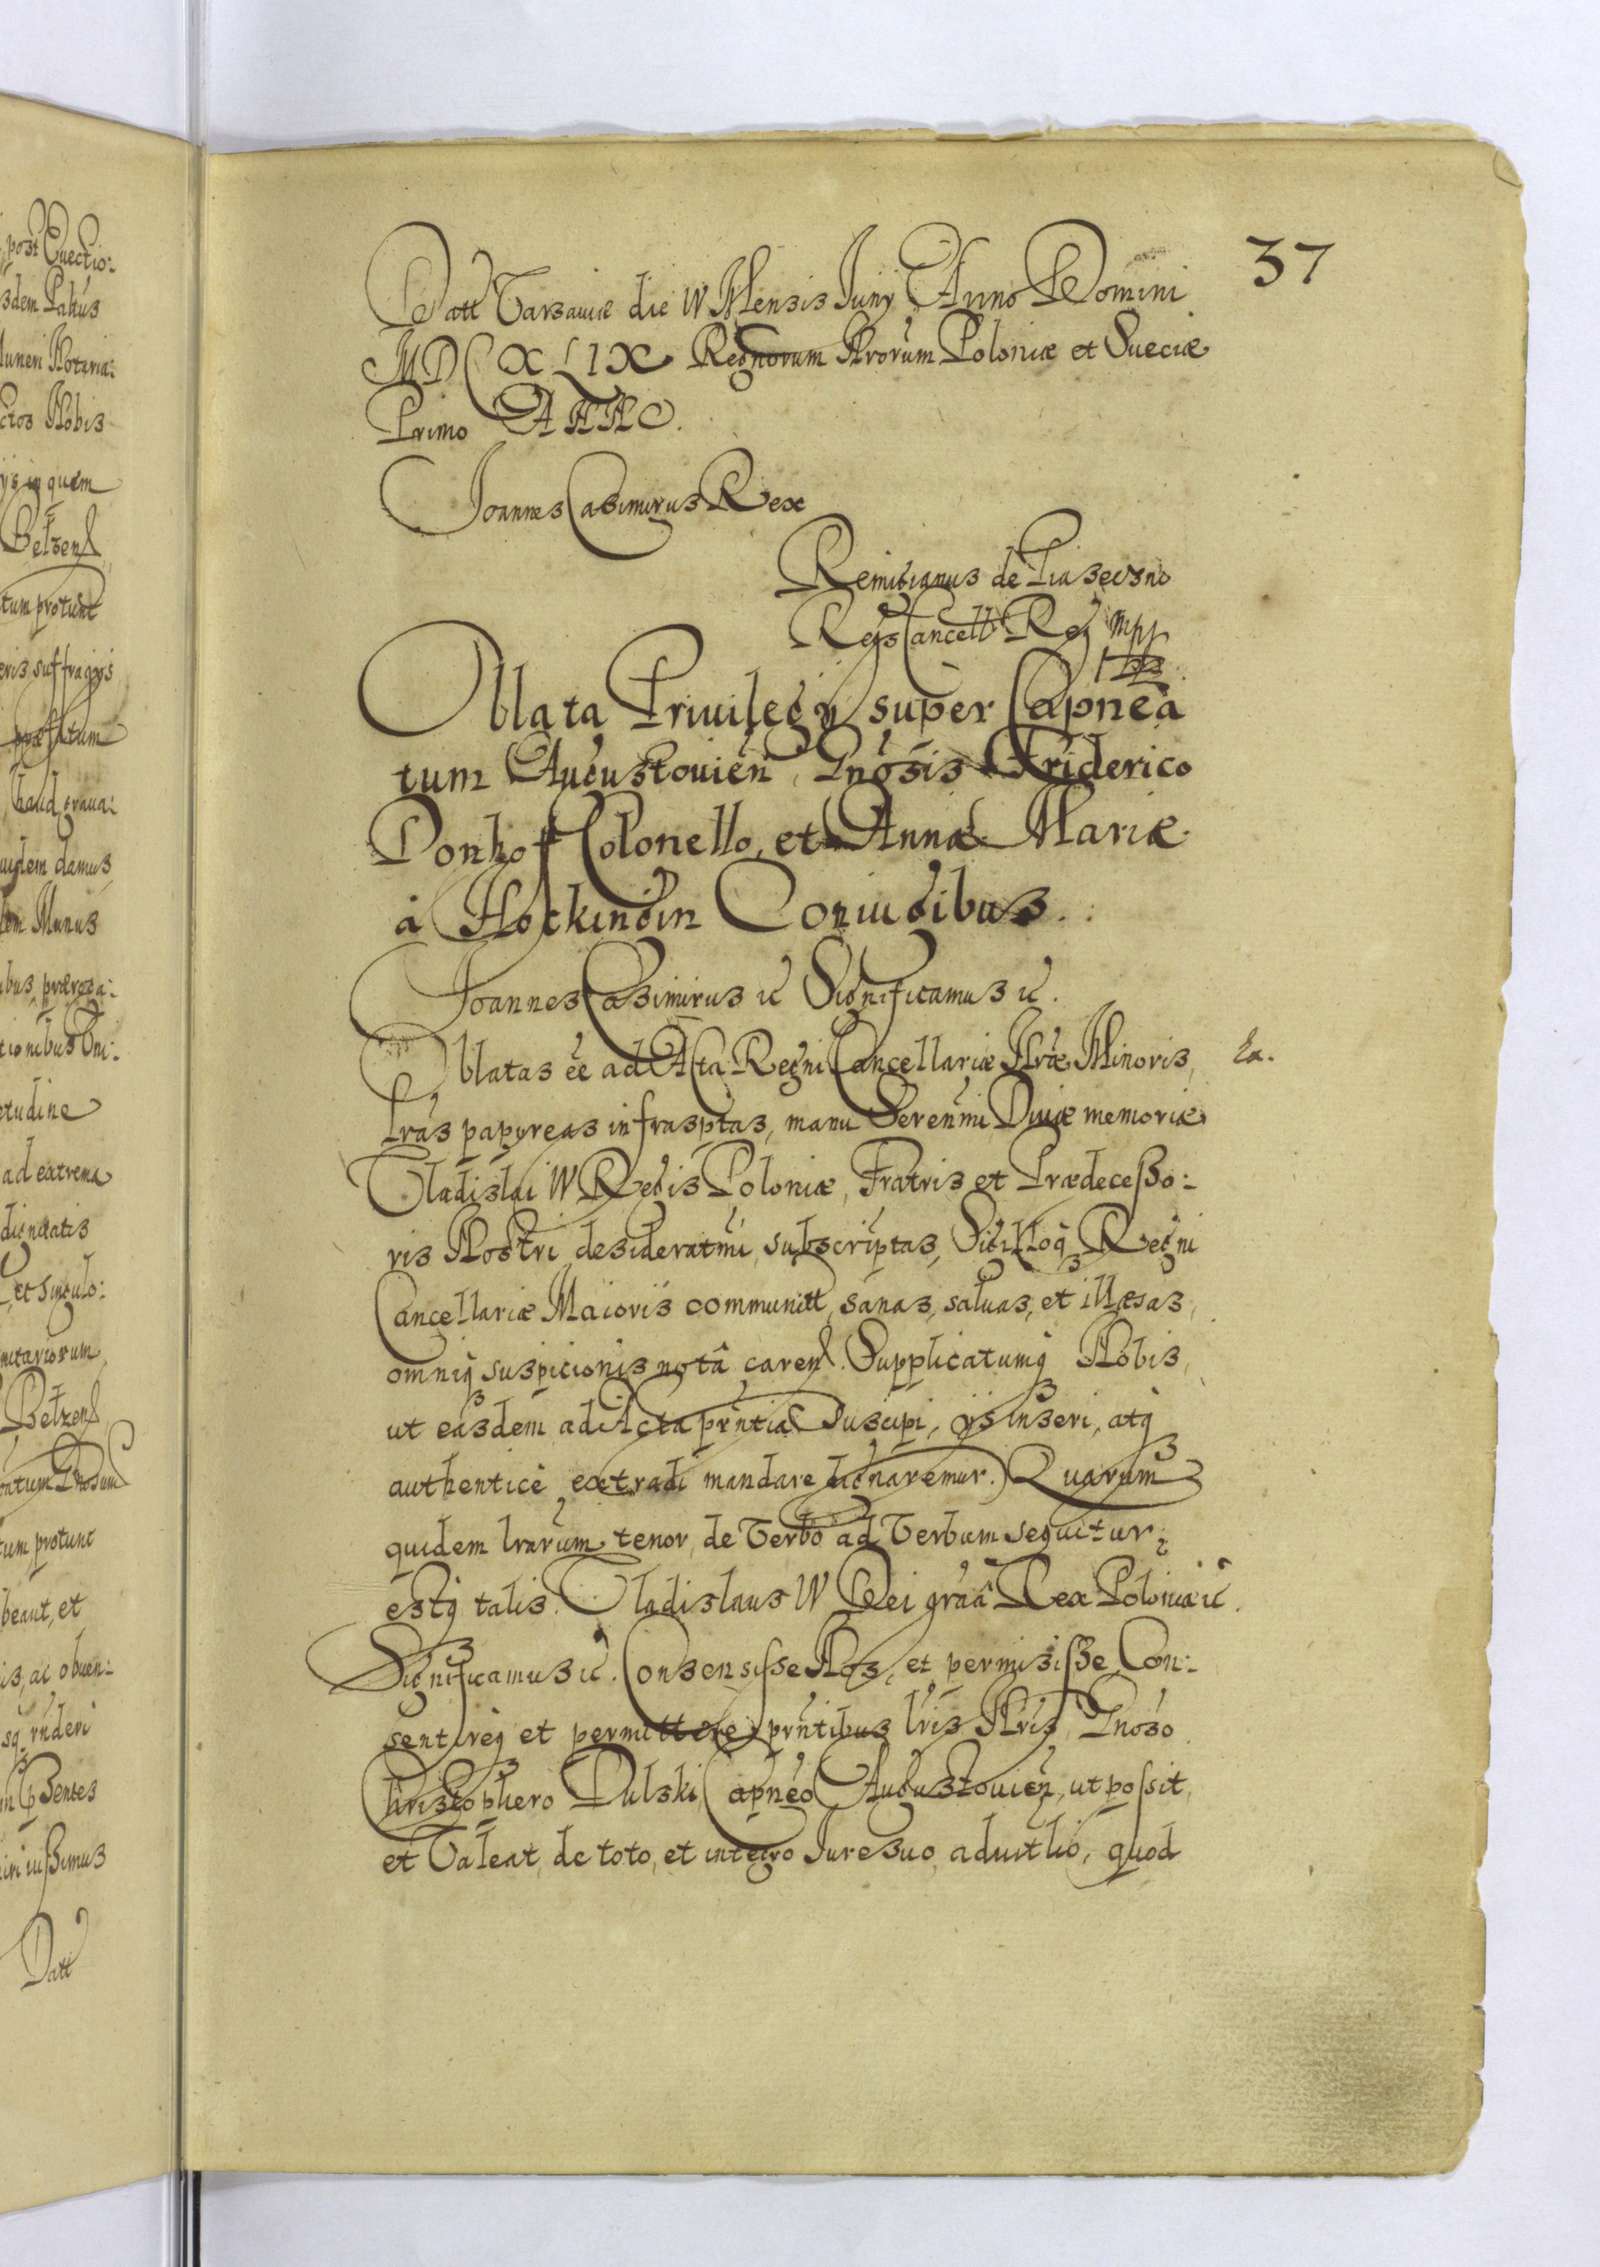 post Euectio:
sdem Pałus
Muneri Notaria:
ctos Nobis
ijs in quem
Belzen
tum protunt
eris suffragijs
præfatum
haud graua:
quidem damus
dem Munus
ibus, præroga:
tionibus Oni:
etudine
ad extrema
dignitatis
et singulo:
nitariorum
Belzen
tum protunt
beant, et
is, ac obuen:
sq. rnderi
in Psentes
iri iußimus
Datt
37
Datt Varsauiæ die IV Mensis Iunÿ Anno Domini
MDCXLIX Regnorum Nrorum Poloniæ et Sueciæ
Primo ANNO.
Ioannes Casimirus Rex
Remigianus de Piaseczno
Regs Cancellr Reg mpp
Oblata Priuilegÿ super Capnea
tum Augustouien, Gnosis Friderico
Donhoff Colonello, et Annæ Mariæ
à Hockingin Coniugibus.
Ioannes Casimirus ic Significamus ic.
Oblatas eē ad Acta Regni Cancellariæ Nræ Minoris, Ex.
Lras papyreas infrasptas, manu Serenmi Diuæ memoriæ
Vladislai IV Regis Poloniæ, Fratris et Prædeceßo:
ris Nostri desideratmi, subscriptas, Sigilloq Regni
Cancellariæ Maioris communitt, sanas, saluas, et illæsas,
omniq suspicionis notâ caren. Supplicatumq Nobis,
ut easdem ad Acta prntia Suscipi, ijs Inseri, atq
authenticè extradi mandare dignaremur. Quarum
quidem lrarum tenor, de Verbo ad Verbum sequitur,
estq talis. Vladislaus IV Dei graâ Rex Poloniæ ic.
Significamus ic. Consensisse Nos, et permisiße, Con:
sentireq et permittere prntibus lris Nris, Gnoso
Christophero Dulski, Capneo Augustouien, ut possit,
et Valeat, de toto, et integro Iure suo aduitlio, quod